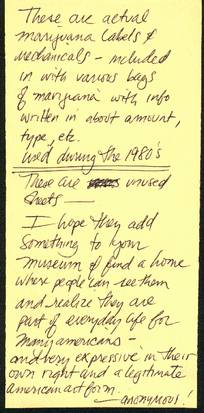 These are actual
marijuana labels &
mechanicals - included
in with various bags
of marijuana with info
written in about amount,
type, etc.
Used during the 1980's
These are unused
sheets —
I hope they add
something to your
museum & find a home
where people can see them
and realize they are
part of everyday life for
many americans -
and very expressive in their
own right and a legitimate
american art form.
— anonymous!